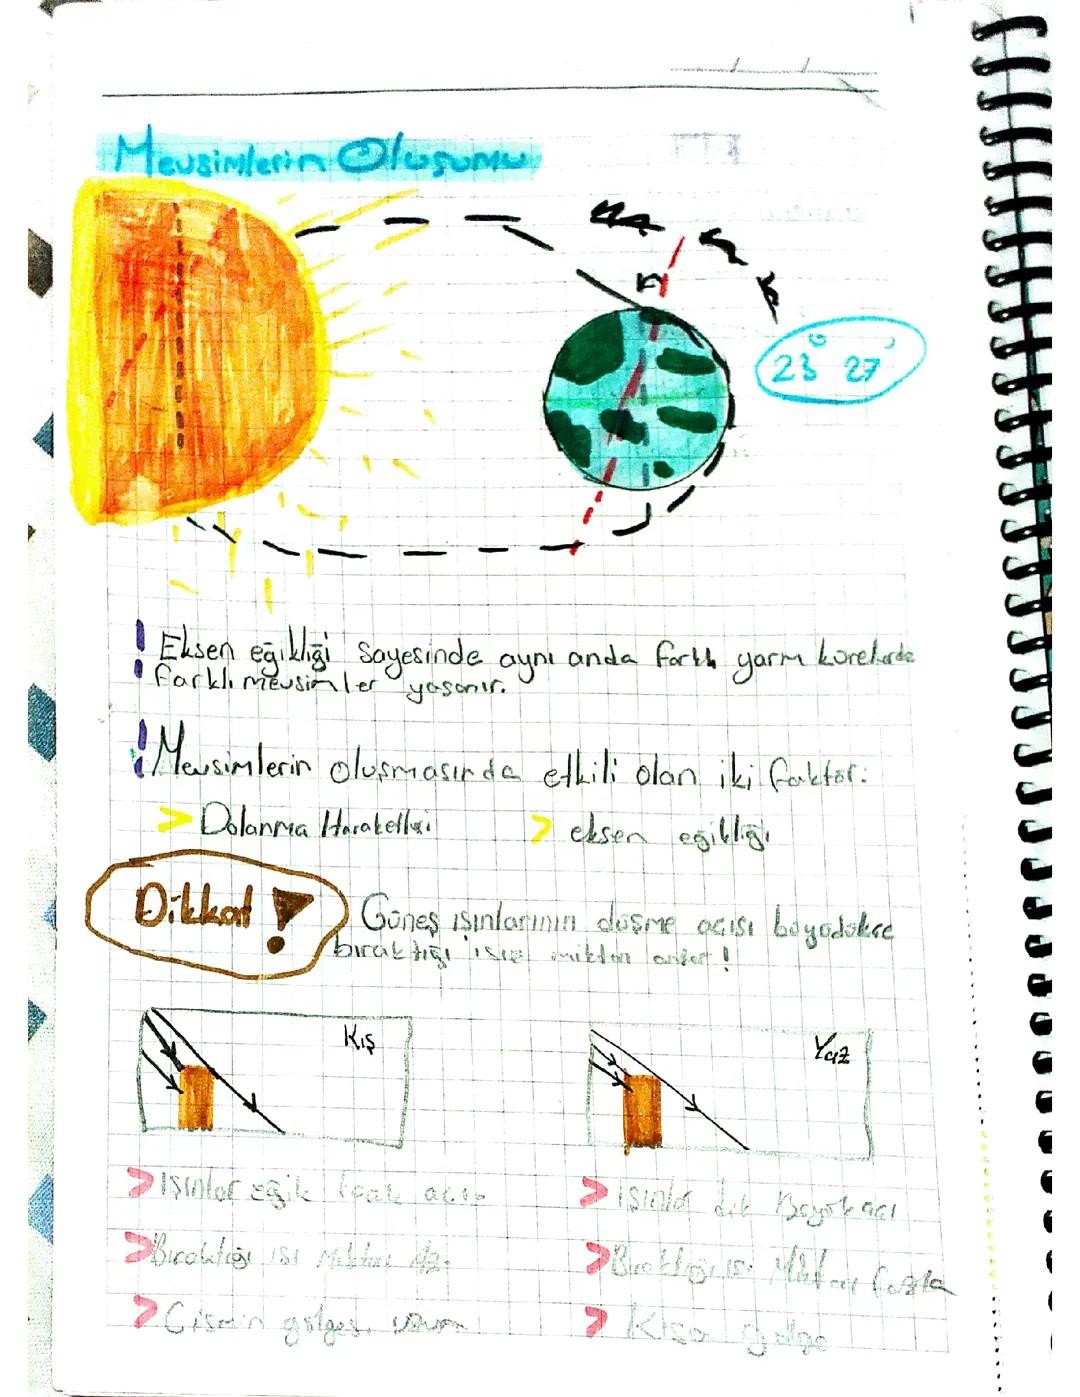 Mevsimlerin Oluşumu
23° 27'
! Eksen eğikliği sayesinde aynı anda farklı yarım kürelerde
farklı mevsimler yaşanır.
! Mevsimlerin oluşmasında etkili olan iki faktör:
> Dolanma Hareketleri > eksen eğikliği
Dikkat! Güneş ışınlarının düşme açısı büyüdükçe
bıraktığı ısı miktarı artar!
Kış Yaz
> Işınlar eğik açı
> ışınlar dik Büyük açı
> Bıraktığı ısı Miktarı Az.
> Bıraktığı ısı Miktarı fazla
> Cismin gölgesi uzun
> Kısa gölge